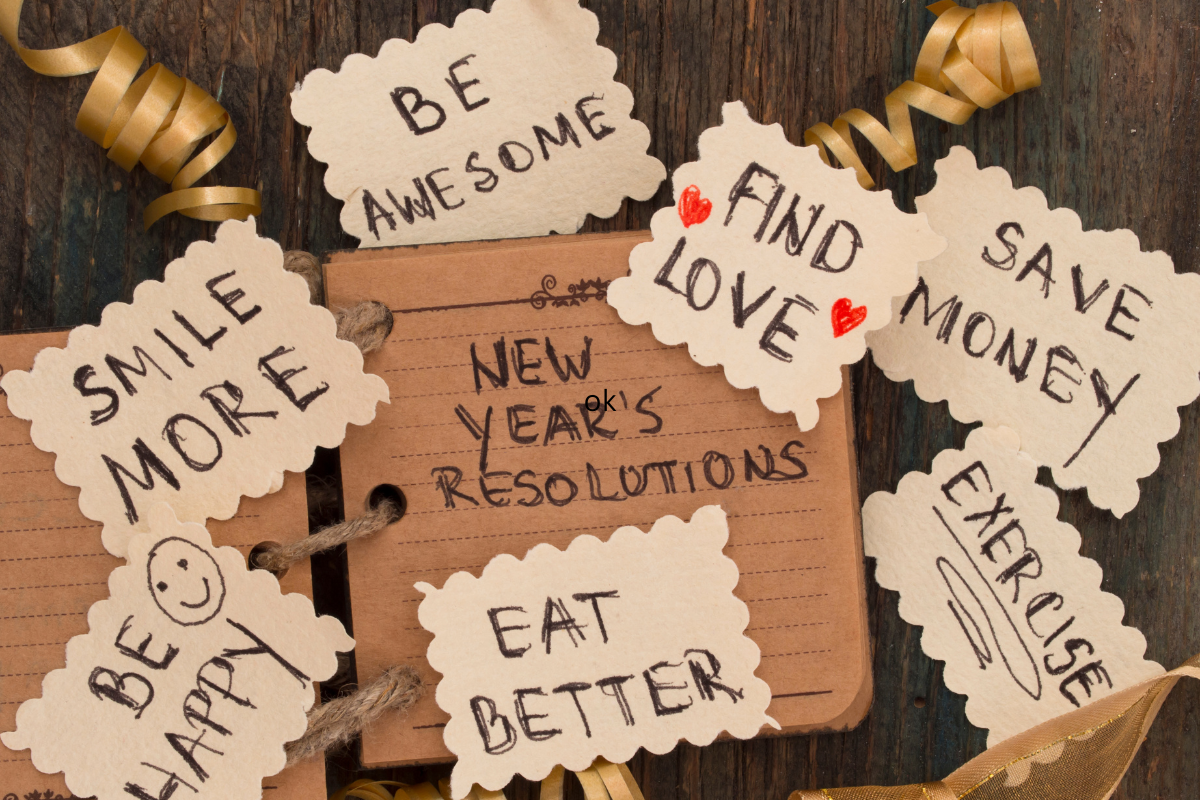 BE
AWESOME
FIND
LOVE
SAVE
MONEY
SMILE
MORE
NEW
YEAR'S
ok
RESOLUTIONS
EXERCISE
EAT
BETTER
BE
HAPPY